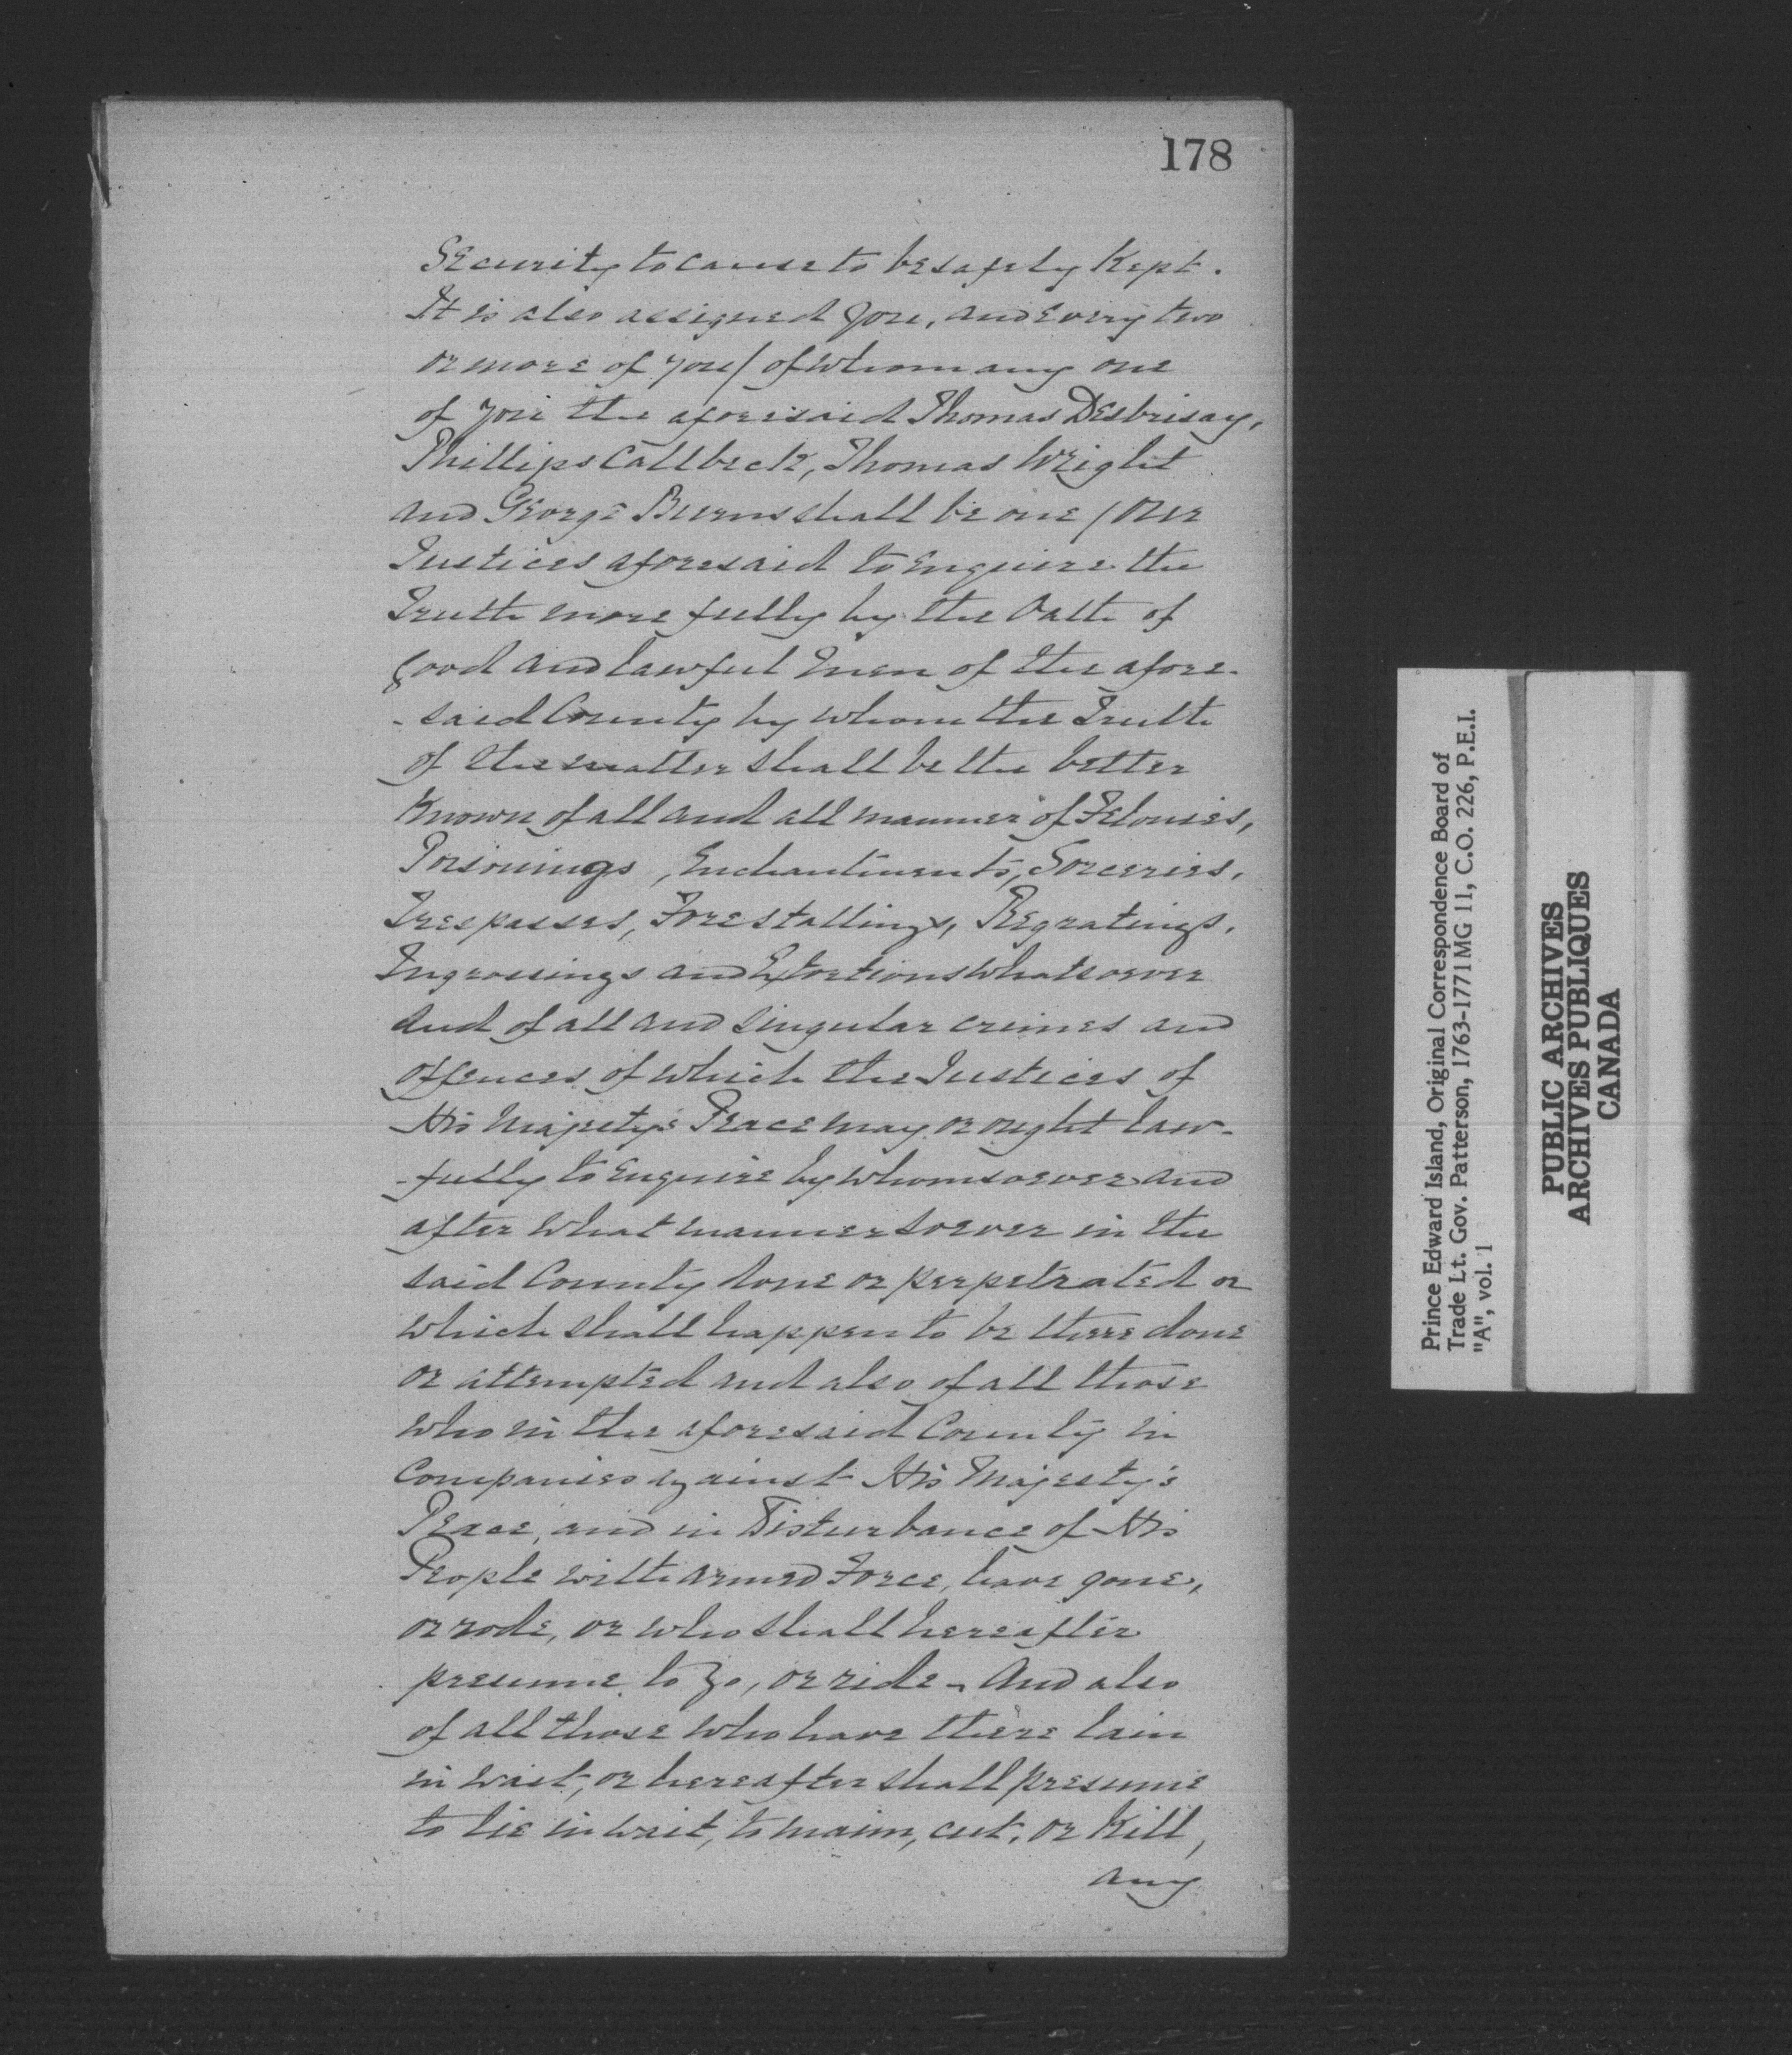 178
Security to cause to be safely Kept.
It is also assigned you, and Every two
or more of you / of whom any one
of you the aforesaid Thomas DEsbrisay,
Phillips Callbeck, Thomas Wright
and George Burns shall be one / Our
Justices aforesaid to Enquire the
Truth more fully by the Oath of
good and lawful men of the afore-
- said County by whom the Truth
of the matter shall be the better
Known of all and all manner of Felonies,
Poisonings, Enchantments, Sorceries,
Trespasses, Forestallings, Regratings,
Ingrossings and Extortions Whatsoever
and of all and singular crimes and
offences of which the Justices of
His Majesty's Peace may or ought law-
- fully to Enquire by whomsoever and
after what manner soever in the
said County done or perpetrated or
which shall happen to be there done
or attempted and also of all those
who in the aforesaid County in
Companies against His Majesty's
Peace, and in Disturbance of His
People with armed Force, have gone,
or rode, or who shall hereafter
presume to go, or ride - And also
of all those who have there lain
in wait, or hereafter shall presume
to lie in wait, to maim, cut, or Kill,
any
Prince Edward Island, Original Correspondence Board of
Trade Lt. Gov. Patterson, 1763-1771 MG 11, C.O. 226, P.E.I.
"A", vol. 1
PUBLIC ARCHIVES
ARCHIVES PUBLIQUES
CANADA